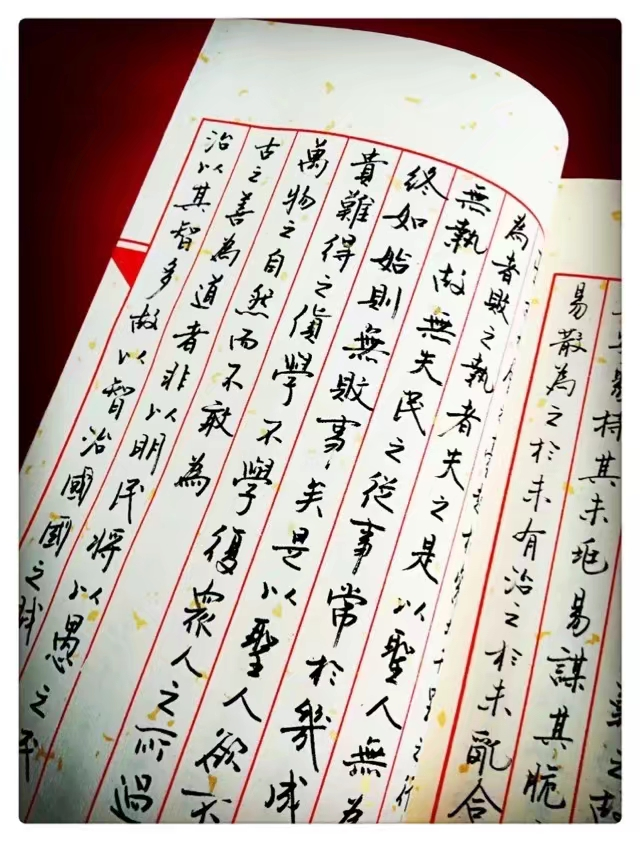 持其未垗易謀其脆
易散為之於未有治之於未亂合
千里之行
為者敗之執者失之是以聖人無為
無執故無失民之從事常於幾成
終如始則無敗事、矣是以聖人欲不
貴難得之貨學不學復眾人之所過
萬物之自然而不敢為
古之善為道者非以明民將以愚之民
治以其智多故以智治國國之賊